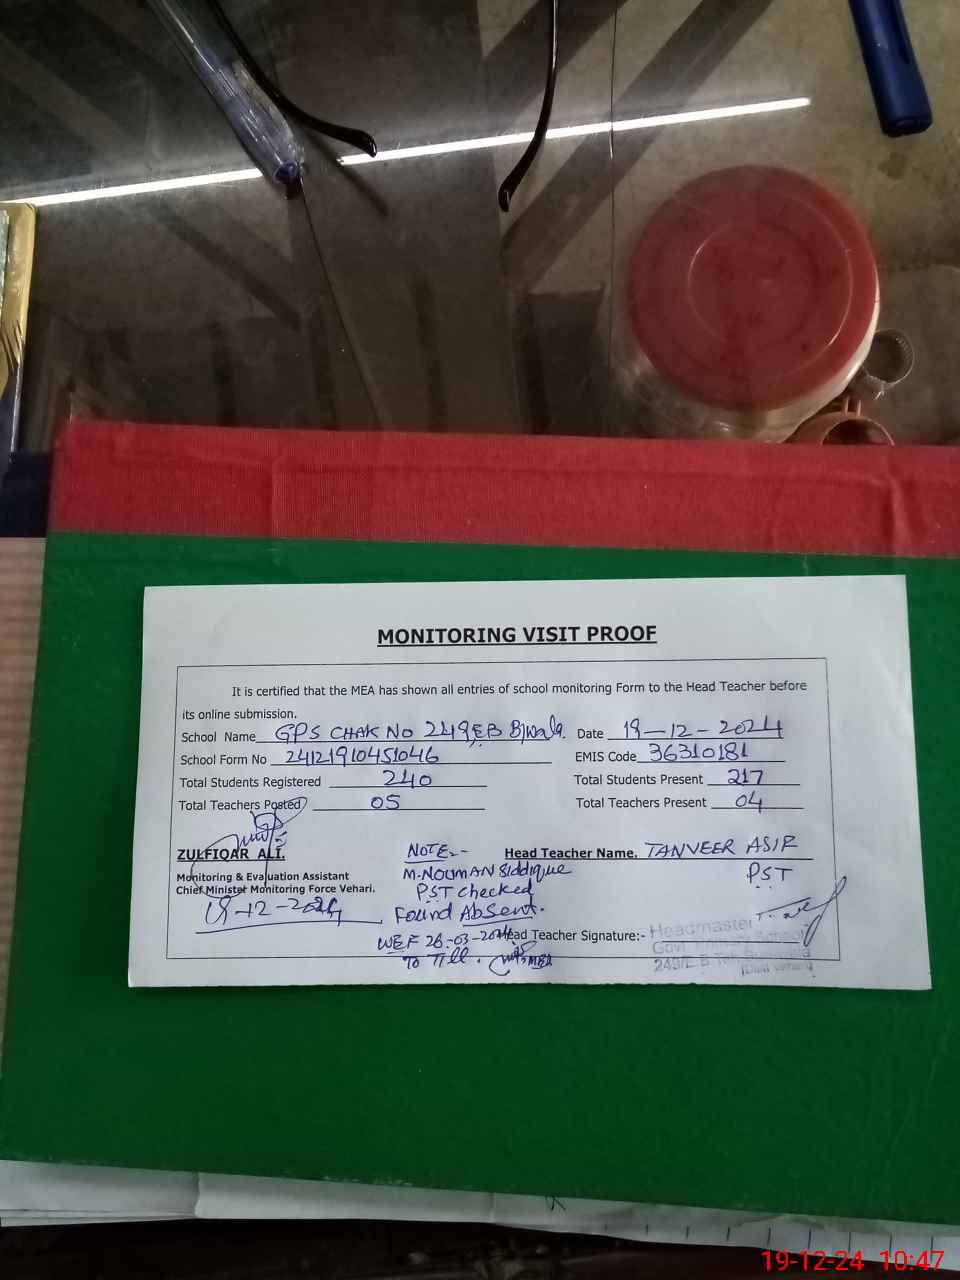 MONITORING VISIT PROOF
It is certified that the MEA has shown all entries of school monitoring Form to the Head Teacher before
its online submission.
School Name GPS CHAK No 249/EB B/wala. Date 19-12-2024
School Form No 24121910451046 EMIS Code 36310181
Total Students Registered 240 Total Students Present 217
Total Teachers Posted 05 Total Teachers Present 04
ZULFIQAR ALI. NOTE:- Head Teacher Name. TANVEER ASIF
Monitoring & Evaluation Assistant M.NOUMAN Siddique PST
Chief Minister Monitoring Force Vehari. PST checked
19-12-2024 Found Absent.
WEF 26-03-2024 Head Teacher Signature:- Headmaster
To Till. MEA Govt. School
249/E.B
19-12-24 10:47